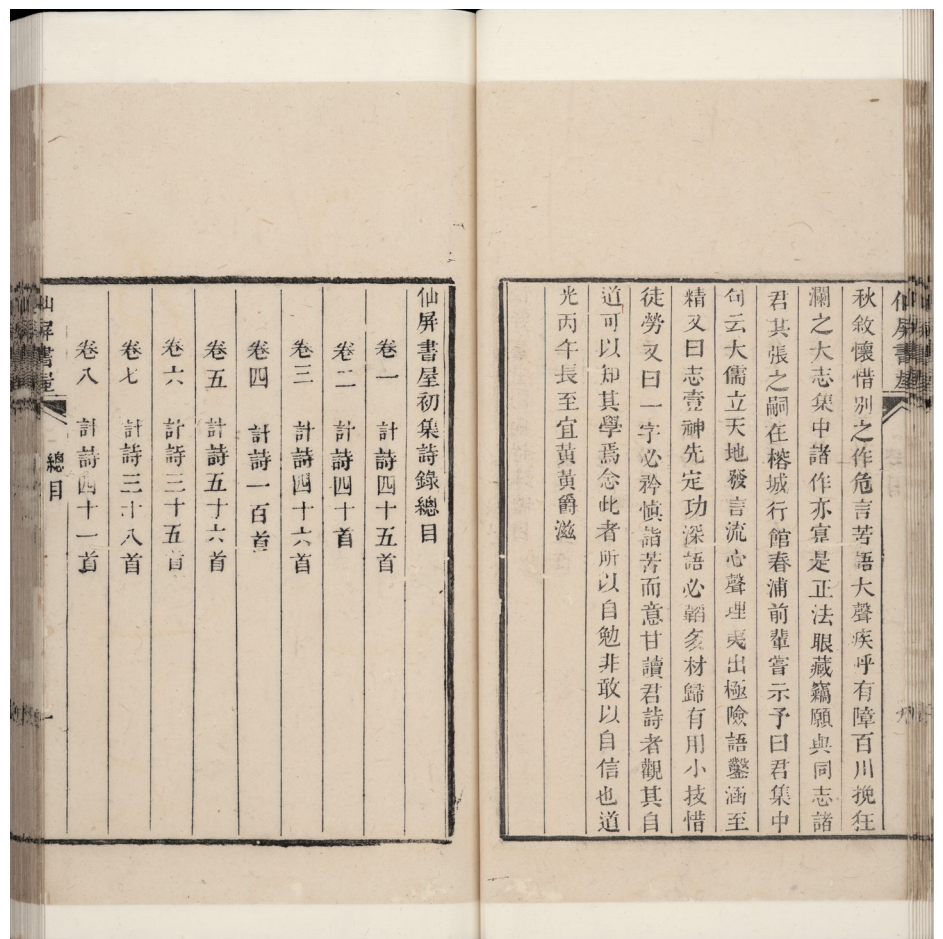 仙屏書屋
秋敘懷惜別之作危言苦語大聲疾呼有障百川挽狂
瀾之大志集中諸作亦寡是正法眼藏竊願與同志諸
君共張之嗣在榕城行館春浦前輩嘗示予曰君集中
句云大儒立天地發言流心聲理夷出極險語鑿涵至
精又曰志壹神先定功深語必韜多材歸有用小技惜
徒勞又曰一字必矜慎詣苦而意甘讀君詩者觀其自
道可以知其學焉念此者所以自勉非敢以自信也道
光丙午長至宜黃黃爵滋
仙屏書屋初集詩錄總目
卷一 計詩四十五首
卷二 計詩四十首
卷三 計詩四十六首
卷四 計詩一百首
卷五 計詩五十六首
卷六 計詩三十五首
卷七 計詩三十八首
卷八 計詩四十一首
仙屏書屋 總目 一